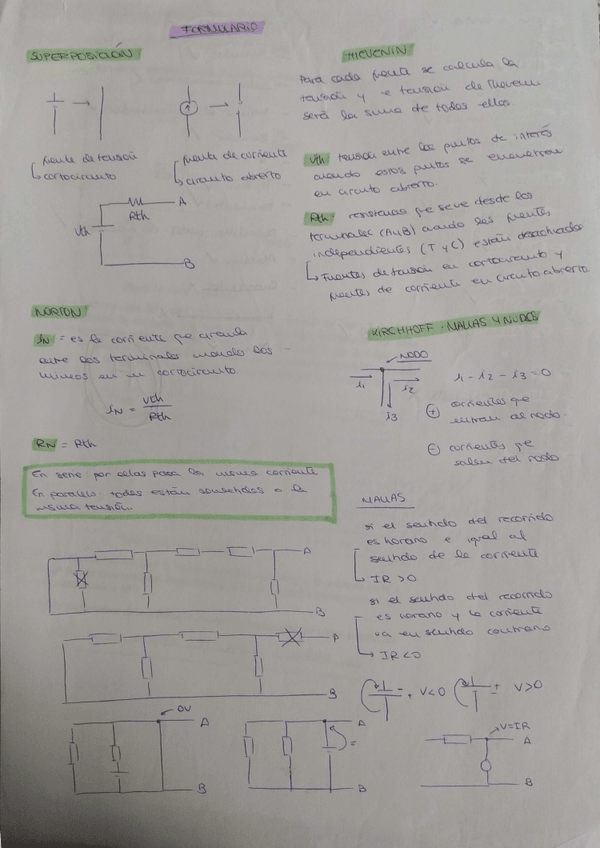 FORMULARIO
SUPERPOSICIÓN
fuente de tensión
cortocircuito
fuente de corriente
circuito abierto
Rth
Vth
A
B
THEVENIN
Para cada fuente se calcula la
tensión y e tensión de Thevenin
será la suma de todas ellas.
Vth tensión entre los puntos de interés
cuando estos puntos se encuentran
en circuito abierto.
Rth = resistencia que se ve desde los
terminales (A y B) cuando las fuentes
independientes (T y C) están desactivadas
Fuentes de tensión en cortocircuito y
fuentes de corriente en circuito abierto
NORTON
IN = es la corriente que circula
entre los terminales cuando los
mismos en un cortocircuito.
IN = Vth / Rth
RN = Rth
En serie por ellas pasa la misma corriente
En paralelo todas están sometidas a la
misma tensión.
KIRCHHOFF · MALLAS Y NUDOS
NODO
i1
i2
i3
i1 - i2 - i3 = 0
+ corrientes que
entran al nodo
- corrientes que
salen del nodo
MALLAS
si el sentido del recorrido
es horario e igual al
sentido de la corriente
IR > 0
si el sentido del recorrido
es horario y la corriente
va en sentido contrario
IR < 0
V < 0
V > 0
A
B
A
B
0V
A
B
A
B
V=IR
A
B